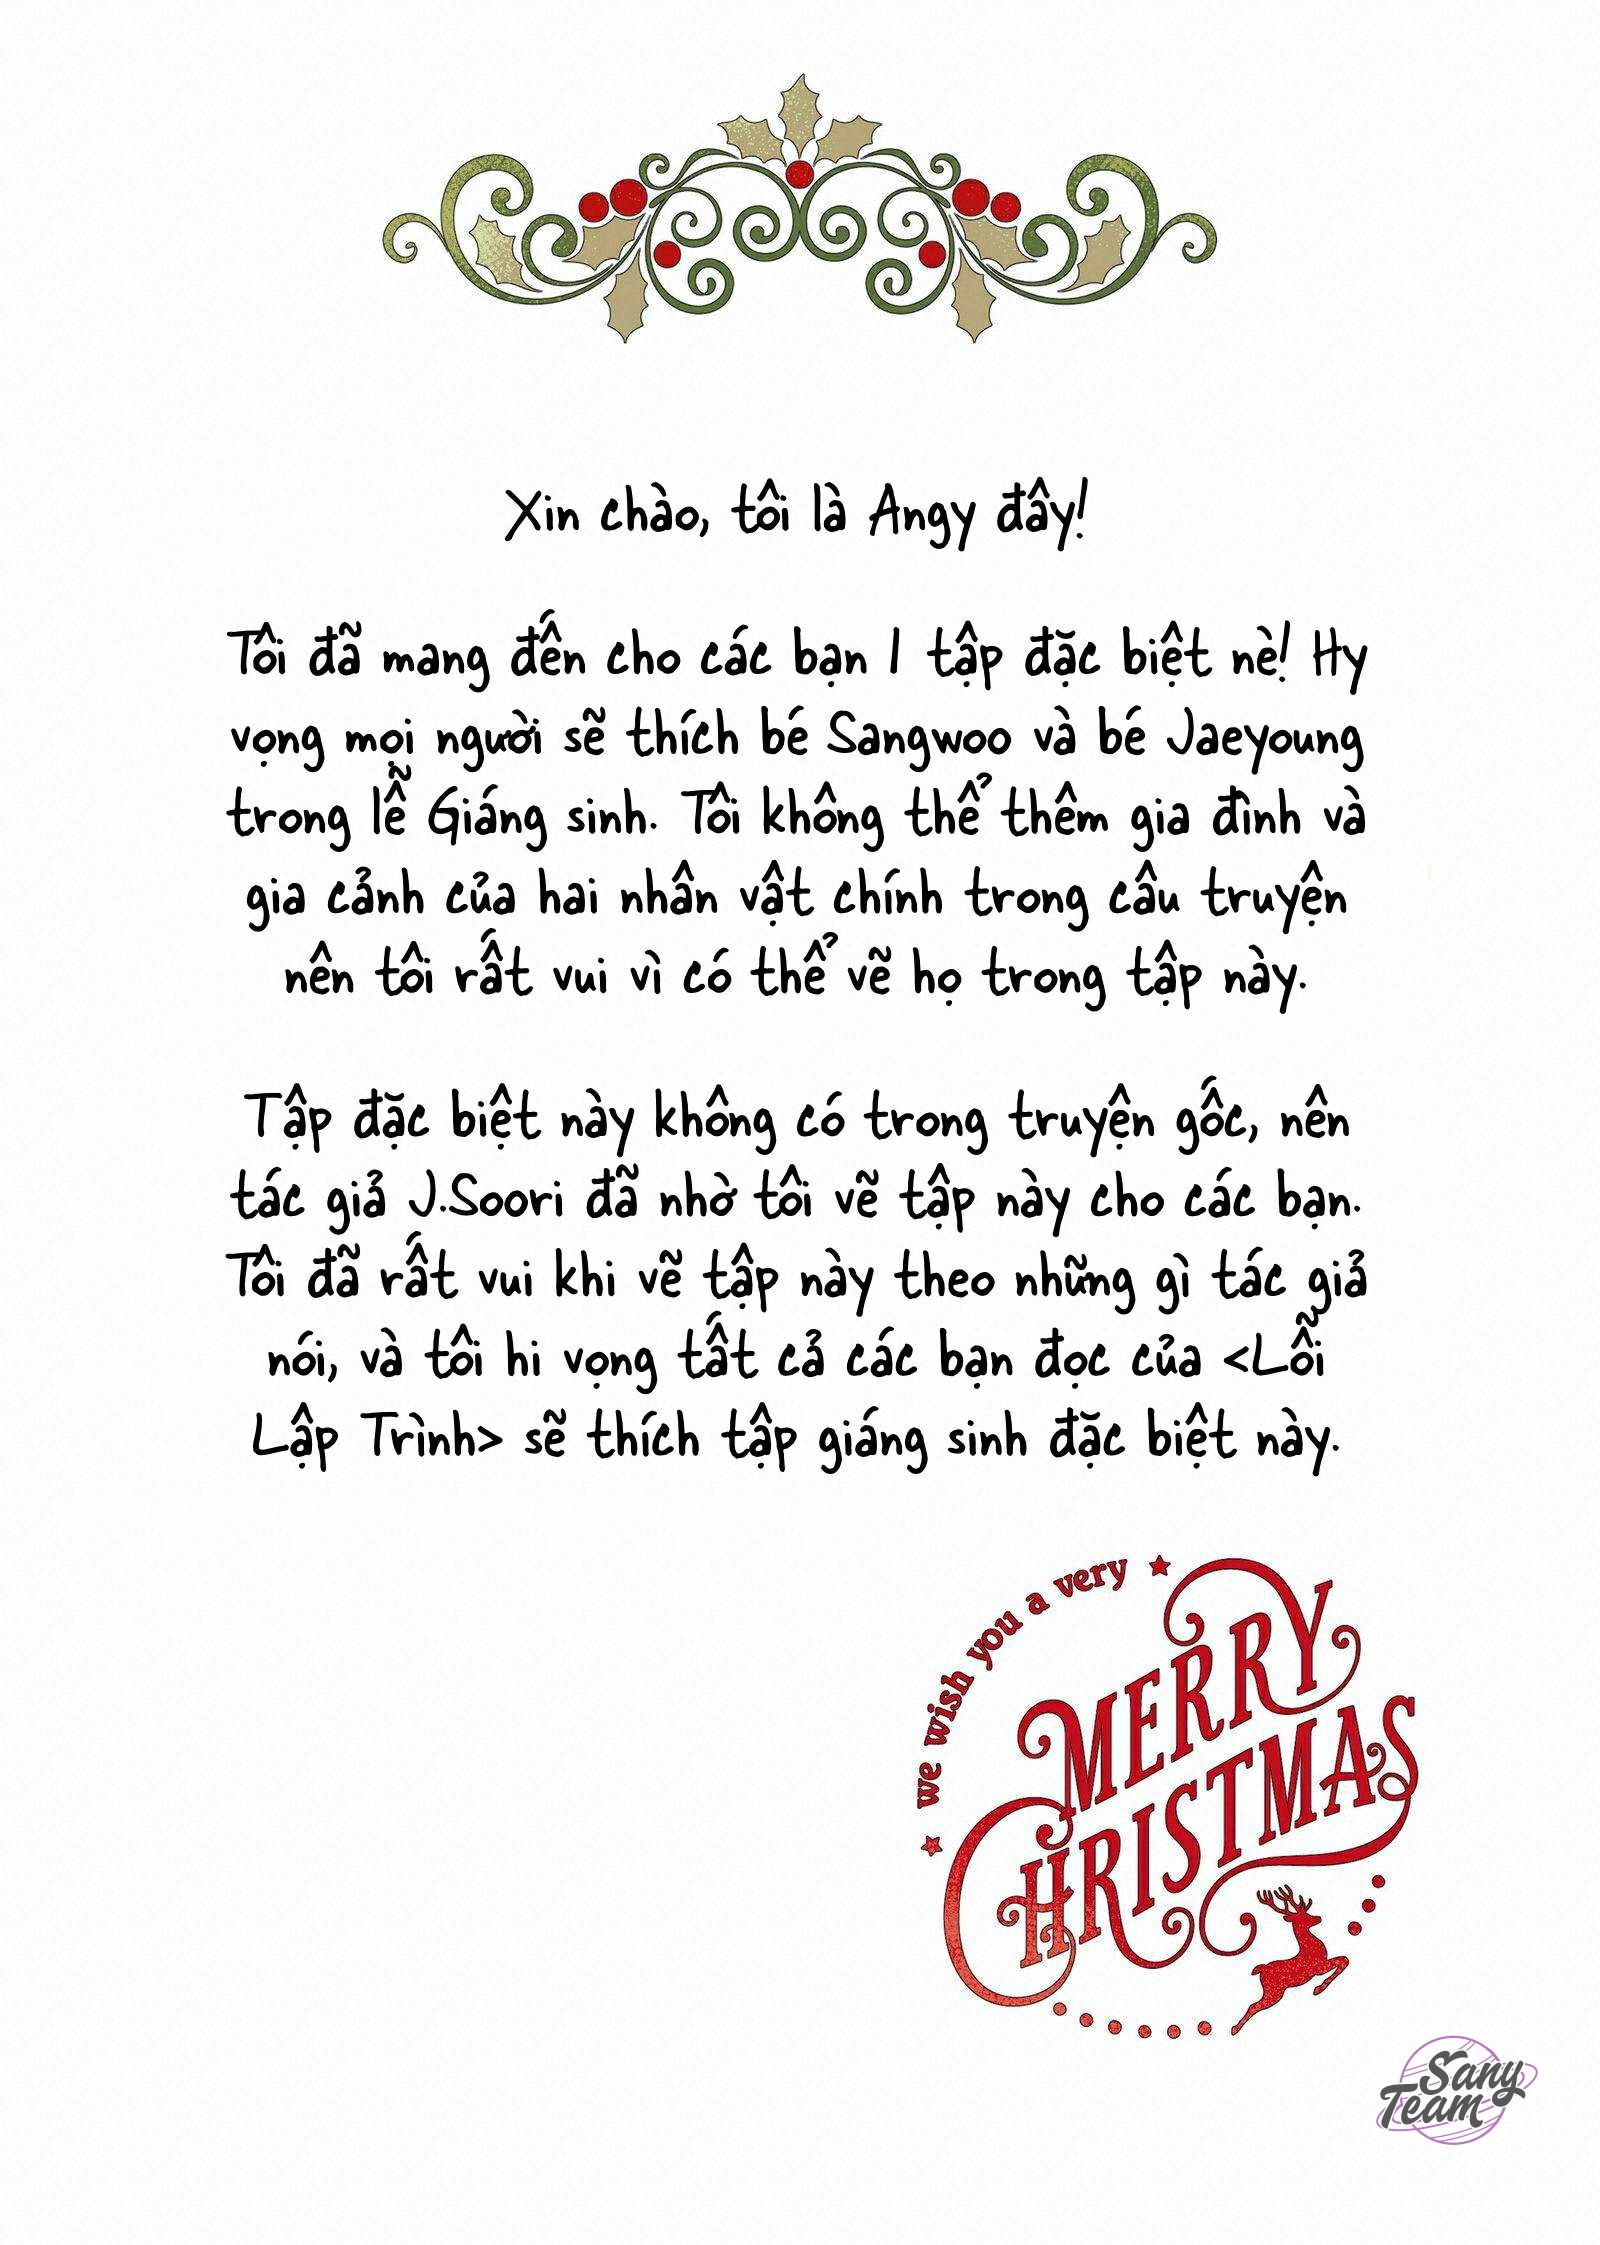 Xin chào, tôi là Angy đây!
Tôi đã mang đến cho các bạn 1 tập đặc biệt nè! Hy
vọng mọi người sẽ thích bé Sangwoo và bé Jaeyoung
trong lễ Giáng sinh. Tôi không thể thêm gia đình và
gia cảnh của hai nhân vật chính trong câu truyện
nên tôi rất vui vì có thể vẽ họ trong tập này.
Tập đặc biệt này không có trong truyện gốc, nên
tác giả J.Soori đã nhờ tôi vẽ tập này cho các bạn.
Tôi đã rất vui khi vẽ tập này theo những gì tác giả
nói, và tôi hi vọng tất cả các bạn đọc của <Lỗi
Lập Trình> sẽ thích tập giáng sinh đặc biệt này.
we wish you a very
MERRY
CHRISTMAS
Sany
Team